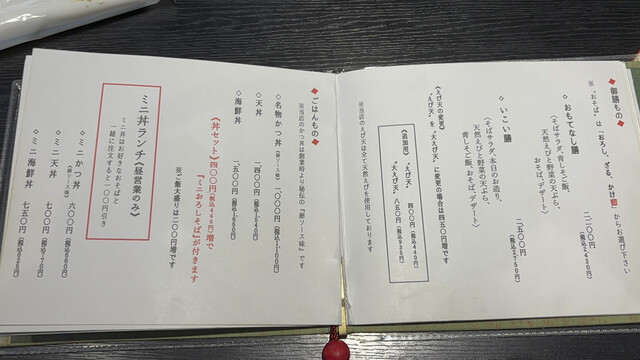 ◆御膳もの◆
※"おそば"は「おろし、ざる、かけ」からお選び下さい
◇おもてなし膳
二、二〇〇円
(税込2420円)
(そばサラダ、青しそご飯、
天然えびと野菜の天ぷら、
おそば、デザート)
◇いこい膳
二、五〇〇円
(税込2750円)
(そばサラダ、本日のお造り、
天然えびと野菜の天ぷら、
青しそご飯、おそば、デザート)
《えび天の変更》
"えび天"を"大えび天"に変更の場合は四五〇円増です
《追加用》
"えび天" 四〇〇円(税込440円)
"大えび天" 八五〇円(税込935円)
※当店のえび天は全て天然えびを使用しております
◆ごはんもの◆
※当店のかつ丼は創業時より秘伝の『勝ソース味』です
◇名物かつ丼(勝ソース味)
一、〇〇〇円(税込1100円)
◇天丼
一、四〇〇円(税込1540円)
◇海鮮丼
一、五〇〇円(税込1650円)
《丼セット》四〇〇円(税込440円)増で
『ミニおろしそば』が付きます
※ご飯大盛りは二〇〇円増です
ミニ丼ランチ《昼営業のみ》
ミニ丼はお好きなおそばと
一緒に注文すると一〇〇円引き
◇ミニかつ丼(勝ソース味)
六〇〇円(税込660円)
◇ミニ天丼
七〇〇円(税込770円)
◇ミニ海鮮丼
七五〇円(税込825円)